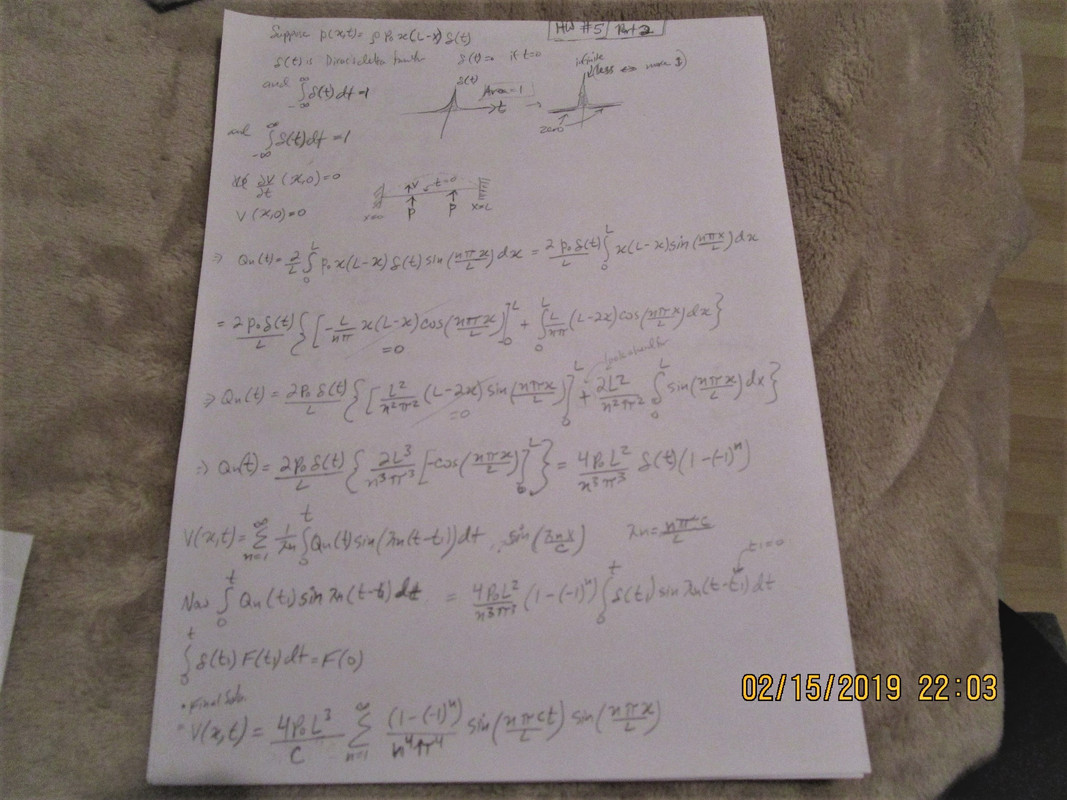 HW #5 / Part 2
Suppose p(x,t) = ρ P₀ x(L-x) δ(t)
δ(t) is Dirac's delta function δ(t)=∞ if t=0
and ∫_{-∞}^{∞} δ(t)dt=1
δ(t) Area=1 t → infinite
zero
and ∫_{-∞}^{∞} δ(t)dt=1
∂V/∂t (x,0)=0
V(x,0)=0
↑V t=0
x=0 P P x=L
⇒ Qn(t)= 2/L ∫_0^L P₀ x(L-x) δ(t) sin(nπx/L) dx = 2P₀δ(t)/L ∫_0^L x(L-x) sin(nπx/L) dx
= 2P₀δ(t)/L { [-L/nπ x(L-x)cos(nπx/L)]_0^L + ∫_0^L L/nπ (L-2x)cos(nπx/L)dx }
=0
⇒ Qn(t) = 2P₀δ(t)/L { [L²/n²π² (L-2x) sin(nπx/L)]_0^L + 2L²/n²π² ∫_0^L sin(nπx/L)dx }
=0
⇒ Qn(t)= 2P₀δ(t)/L { 2L³/n³π³ [-cos(nπx/L)]_0^L } = 4P₀L²/n³π³ δ(t)(1-(-1)ⁿ)
V(x,t)= Σ_{n=1}^{∞} 1/λn ∫_0^t Qn(t) sin(λn(t-t₁))dt . sin(λnx/C) λn= nπc/L
t₁=0
Now ∫_0^t Qn(t₁) sin λn(t-t₁) dt = 4P₀L²/n³π³ (1-(-1)ⁿ) ∫_0^t δ(t₁) sin λn(t-t₁)dt
∫_0^t δ(t₁) F(t₁) dt = F(0)
• Final Soln.
V(x,t) = 4P₀L³/C Σ_{n=1}^{∞} (1-(-1)ⁿ)/n⁴π⁴ sin(nπct/L) sin(nπx/L)
02/15/2019 22:03